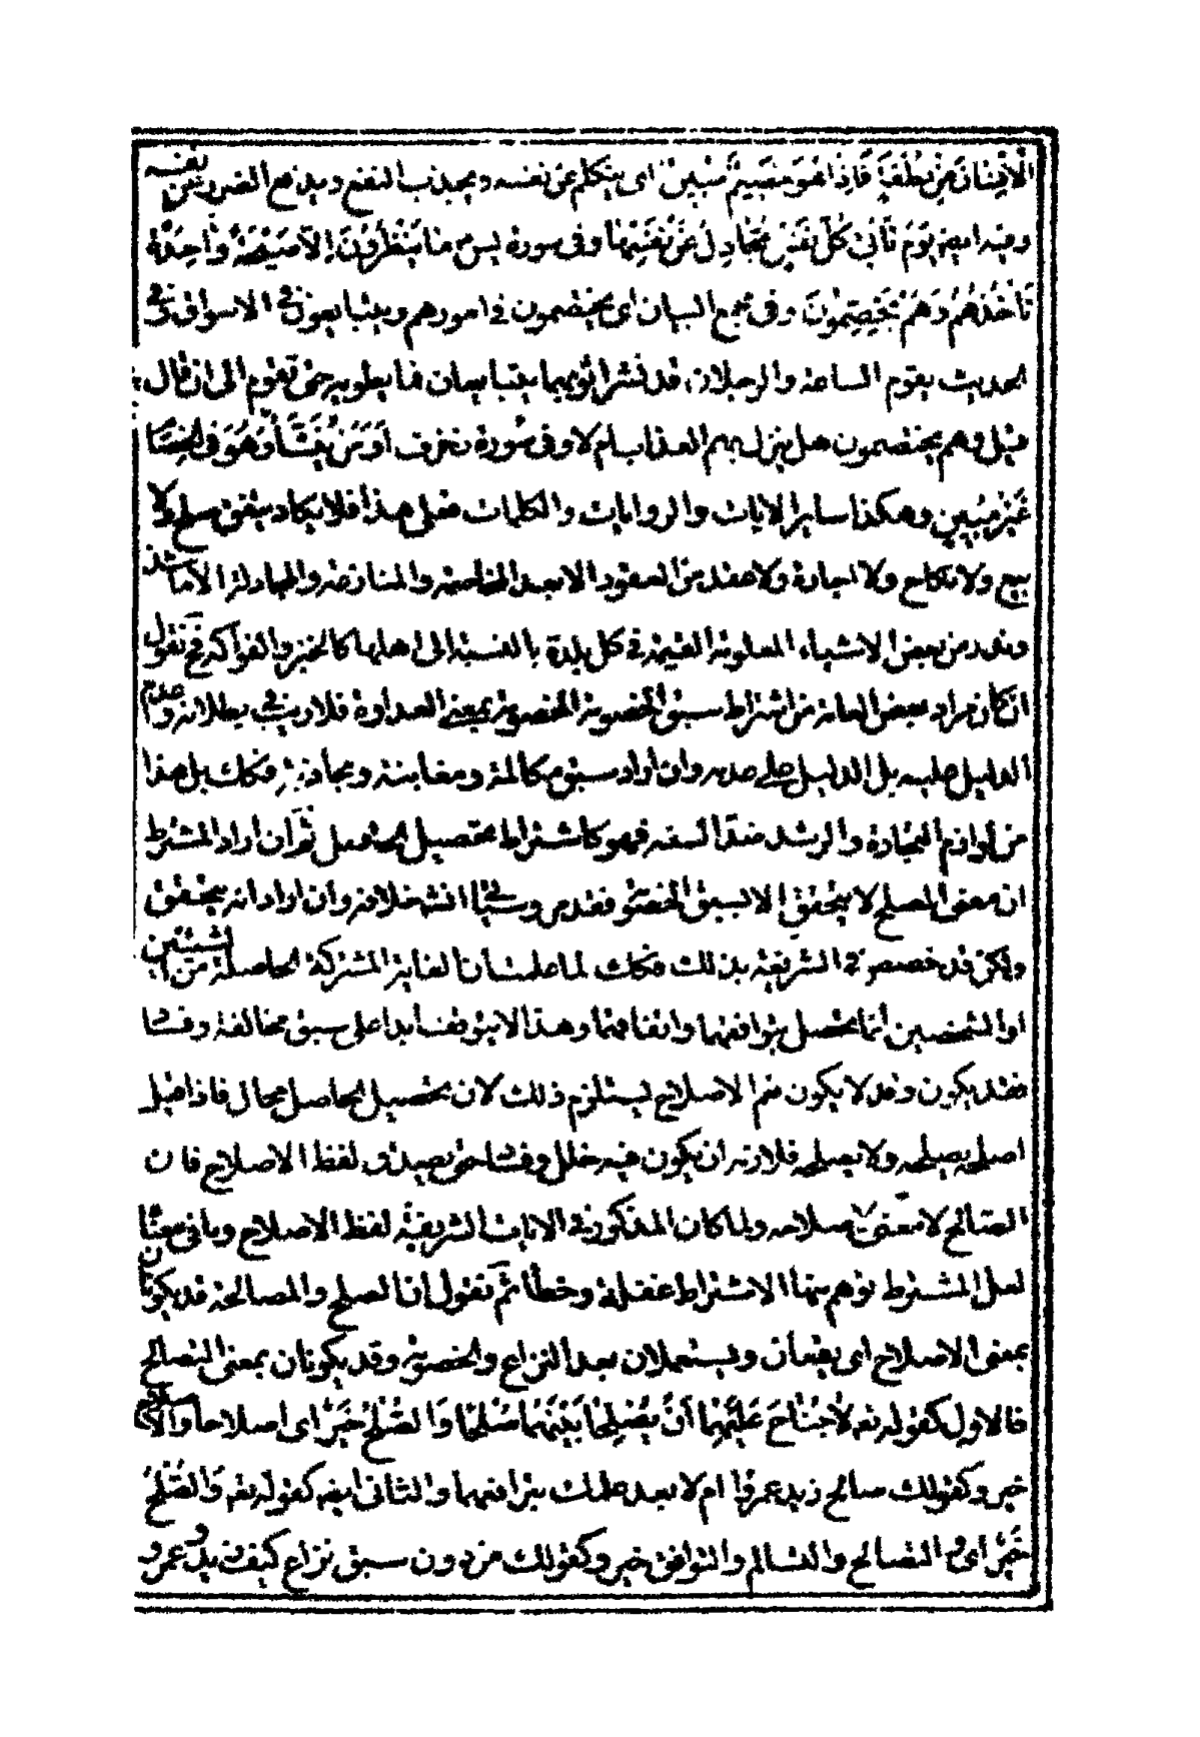 الْاِنْسٰانَ مِنْ نُطْفَةٍ فَاِذٰا هُوَ خَصيمٌ مُبينٌ اى يتكلم عن نفسه ويجذب النفع ويدفع الضرر عن نفسه
وفيه ايضا يَوْمَ تَأْتى كُلُّ نَفْسٍ تُجٰادِلُ عَنْ نَفْسِهٰا وفى سورة يس مٰا يَنْظُرُونَ اِلاّٰ صَيْحَةً وٰاحِدَةً
تَأْخُذُهُمْ وَهُمْ يَخِصِّمُونَ وفى مجمع البيان اى يختصمون فى امورهم ويتبايعون فى الاسواق وفى
الحديث يقوم الساعة والرجلان قد نشرا ثوبهما يتبايعان فما يطويه حتى تقوم الى ان قال
قيل وهم يختصمون هل ينزل بهم العذاب ام لا وفى سورة زخرف اَوَمَنْ يُنَشَّأُ وَهُوَ فِى الْخِصٰا
غَيْرُ مُبينٍ وهكذا ساير الايات والروايات والكلمات فعلى هذا فلا يكاد يتفق صلح لا
بيع ولا نكاح ولا اجارة ولا عقد من العقود الا بعد المخاصمة والمنازعة والمجادلة الا ما شذ
وندر من بعض الاشياء المعلومة القيمة فى كل بلدة بالنسبة الى اهلها كالخبز والفواكه فح نقول
ان كان مراد بعض العامة من اشتراط سبق الخصومة الخصومة بمعنى العداوة فلا ريب فى بطلانه وعدم
الدليل عليه بل الدليل على عدمه وان اراد سبق مكالمة ومجاذبة فكك بل هذا
من لوازم التجارة والرشد ضد السفه فهو كاشتراط تحصيل الحاصل ثم ان اراد المشترط
ان معنى الصلح لا يتحقق الا بسبق الخصومة فقد مر وسيأتى انشاء خلافه وان اراد انه يتحقق
ولكن قد خصص فى الشريعة بذلك فكك لما علمت ان الغاية المشتركة الحاصلة من الشيئين
او الشخصين انما يحصل بتوافقهما واتفاقهما وهذا لا يتوقف ابدا على سبق مخالفة وفسا
فقد يكون وقد لا يكون نعم الاصلاح ليستلزم ذلك لان تحصيل الحاصل محال فاذا قيل
اصلحه يصلحه ولا يصلحه فلا بد ان يكون فيه خلل وفساد حتى يصدق لفظ الاصلاح فان
الصالح لا معنى لاصلاحه ولما كان المذكور فى الايات الشريفة لفظ الاصلاح وما فى معناه
لعل المشترط توهم منها الاشتراط غفلة وخطأ ثم نقول ان الصلح والمصالحة قد يكونان
بمعنى الاصلاح اى يقعان ويستعملان بعد النزاع والخصومة وقد يكونان بمعنى التصالح
فالاول كقوله تعه لاٰ جُنٰاحَ عَلَيْهِمٰا اَنْ يُصْلِحٰا بَيْنَهُمٰا صُلْحًا وَالصُّلْحُ خَيْرٌ اى اصلاحا والاصلاح
خير وكقولك صالح زيد عمروا ام لا بعد علمك بترافعهما والثانى ايضه كقوله تعه وَالصُّلْحُ
خَيْرٌ اى والتصالح والتسالم والتوافق خير وكقولك من دون سبق نزاع كيف زيد وعمرو